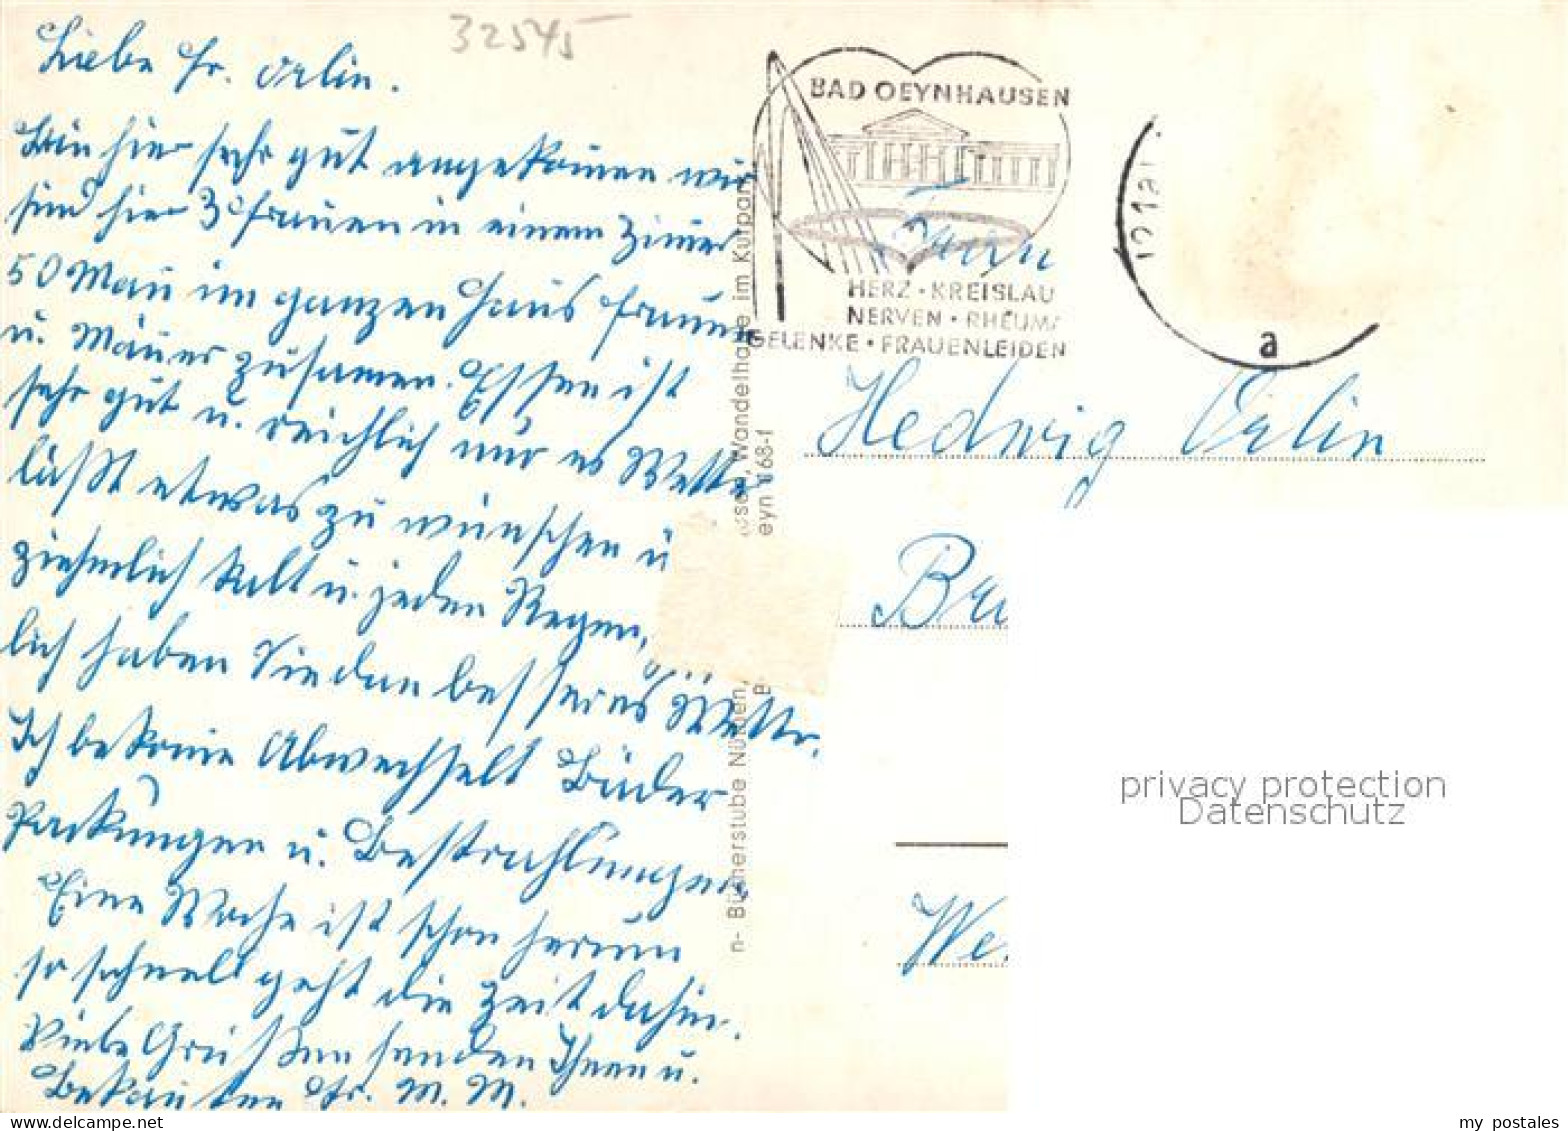 32545
Liebe Fr. Orlin.
Bin hier sehr gut angekommen wir
sind hier 3 Frauen in einem Zimmer
50 Mann im ganzen Haus Frauen
u. Männer zusamen. Essen ist
sehr gut u. reichlich nur es Wetter
läßt etwas zu wünschen ü
ziehmlich kalt u. jeden Regen,
lich haben Sie dan besseres Wetter.
Ich bekomme Abwechselt Bäder
Packungen u. Bestrahlungen
Eine Woche ist schon herum
so schnell geht die Zeit dahin.
Liebe Grüßen senden Ihnen u.
Bekannten Fr. M. M.
BAD OEYNHAUSEN
HERZ · KREISLAU
NERVEN · RHEUMA
GELENKE · FRAUENLEIDEN
a
Wandelhalle im Kurpark
eyn 168-1
n- Bücherstube
Hedwig Orlin
Br
We.
privacy protection
Datenschutz
www.delcampe.net
my_postales